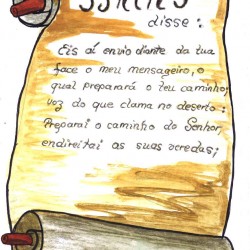 disse:
Eis aí envio diante da tua
face o meu mensageiro, o
qual preparará o teu caminho;
voz do que clama no deserto:
Preparai o caminho do Senhor,
endireitai as suas veredas;